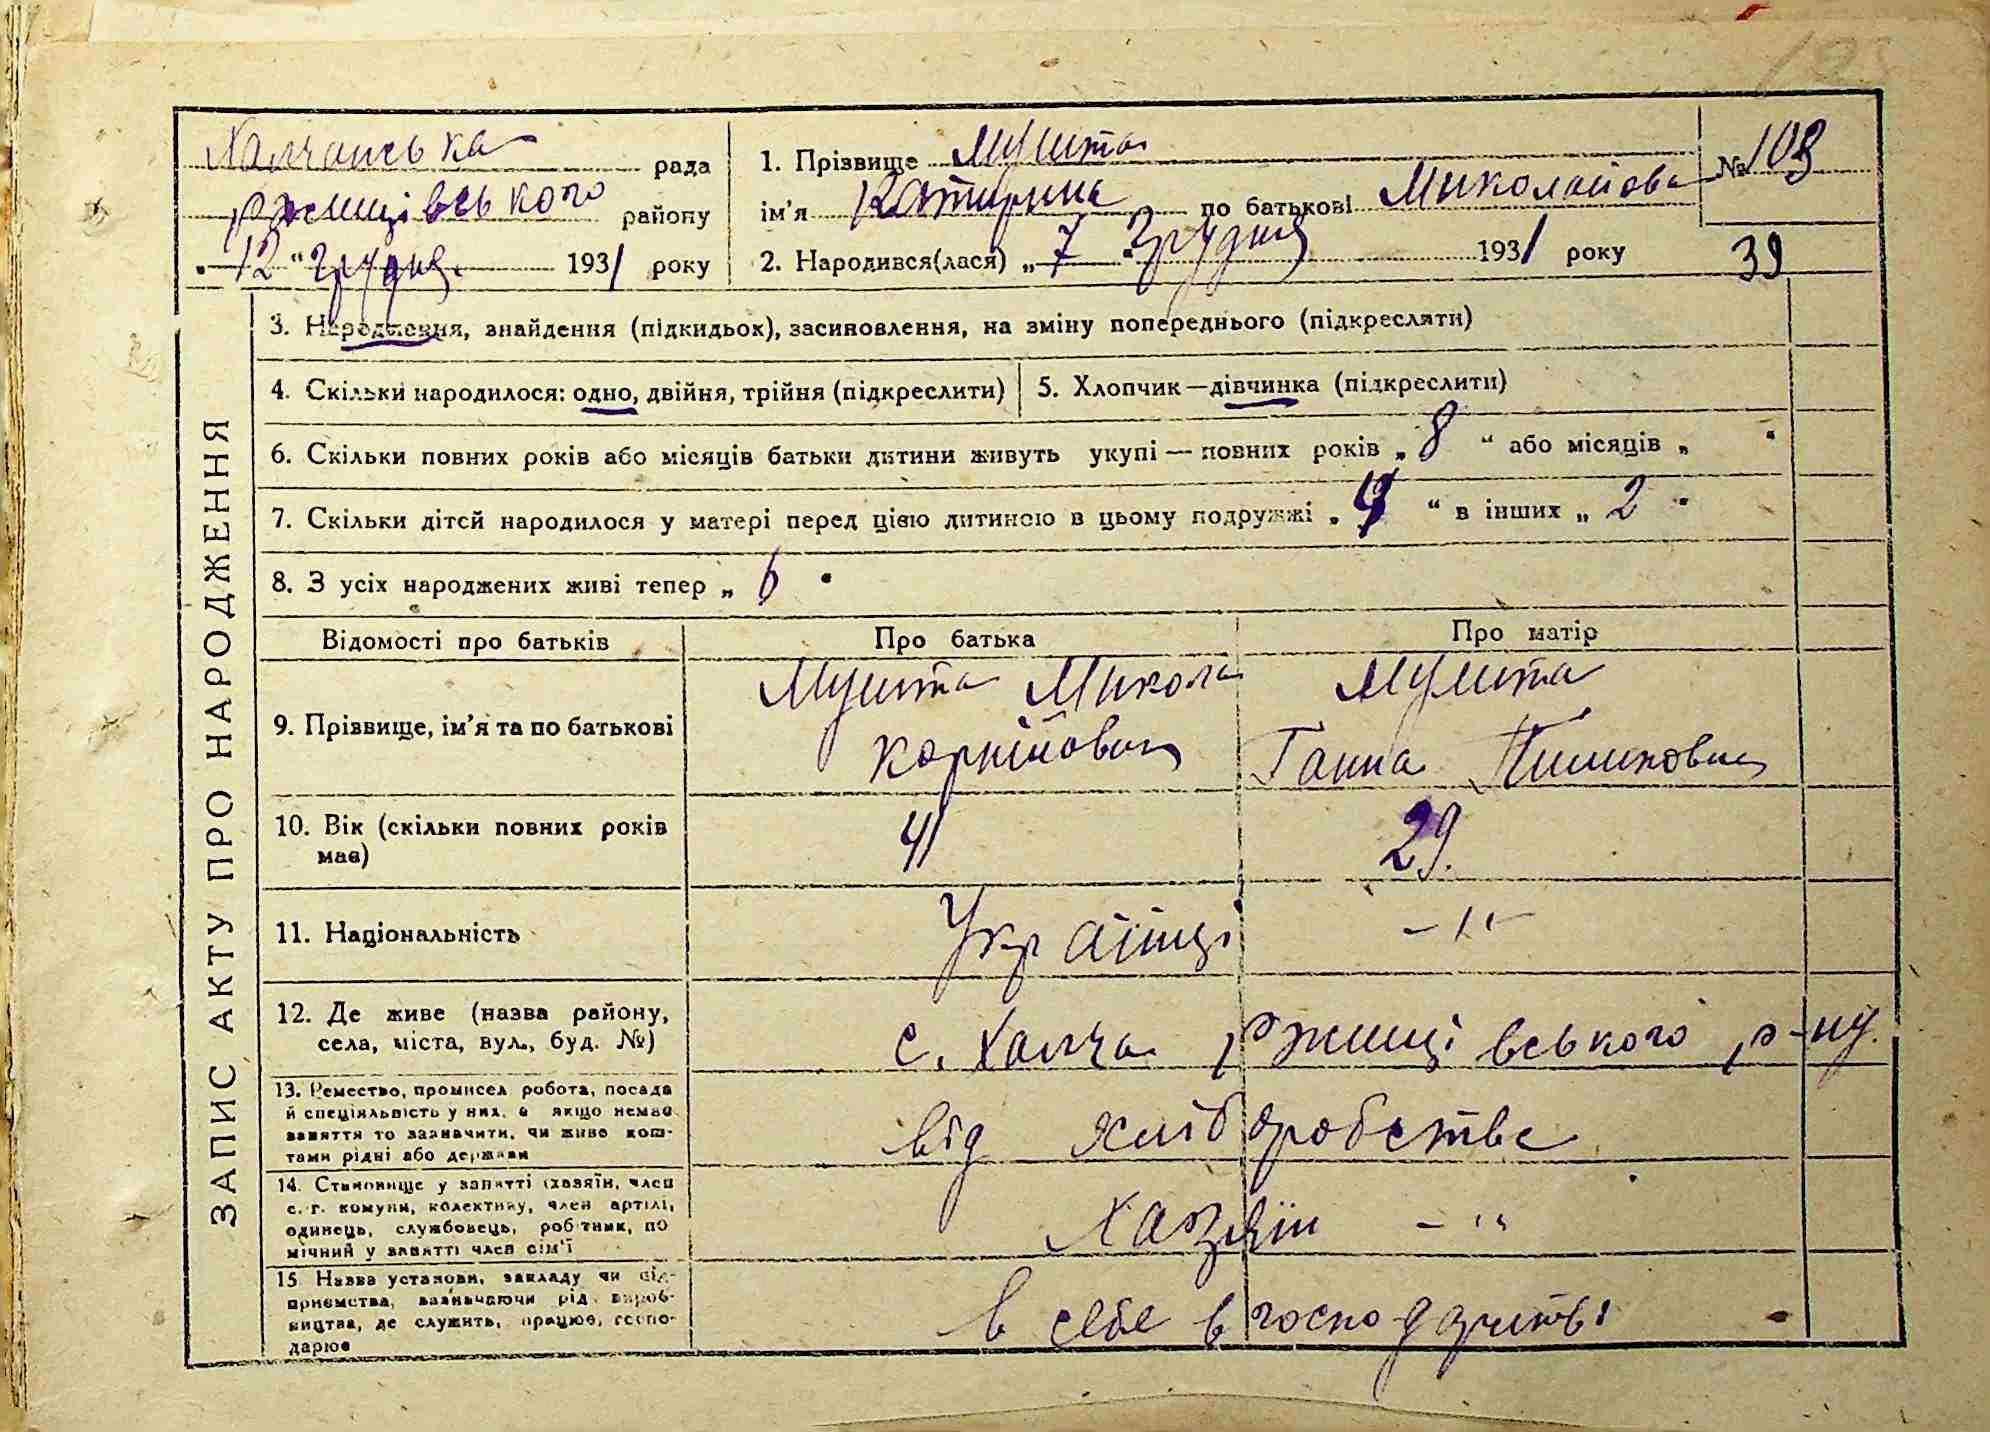 Халчанська рада
Ржищівського району
„ 12 “ грудня 1931 року
1. Прізвище Мушта
ім’я Катирина по батькові Миколайова
2. Народився(лася) „ 7 “ грудня 1931 року
№ 103
39
ЗАПИС АКТУ ПРО НАРОДЖЕННЯ
3. Народження, знайдення (підкидьок), засиновлення, на зміну попереднього (підкреслити)
4. Скільки народилося: одно, двійня, трійня (підкреслити)
5. Хлопчик — дівчинка (підкреслити)
6. Скільки повних років або місяців батьки дитини живуть укупі — повних років „ 8 “ або місяців „ “
7. Скільки дітей народилося у матері перед цією дитиною в цьому подружжі „ “ в інших „ 2 “
8. З усіх народжених живі тепер „ 6 “
Відомості про батьків
Про батька
Про матір
9. Прізвище, ім’я та по батькові
Мушта Микола
Корнійович
Мушта
Ганна Пилиповна
10. Вік (скільки повних років
має)
41
29.
11. Національність
Українці
–〃–
12. Де живе (назва району,
села, міста, вул., буд. №)
с. Халча Ржищівського р-ну.
13. Ремество, промисел робота, посада
й спеціяльність у них, а якщо немає
заняття то зазначити, чи живе кош-
тами рідні або держави
від хліборобства
14. Становище у занятті (хазяїн, член
с.-г. комуни, колективу, член артілі,
одинець, службовець, робітник, по
мічний у занятті член сім’ї
Хазяїн – 〃
15 Назва установи, закладу чи під-
приємства, зазначаючи рід вироб-
ництва, де служить, працює, госпо-
дарює
в себе в господарстві